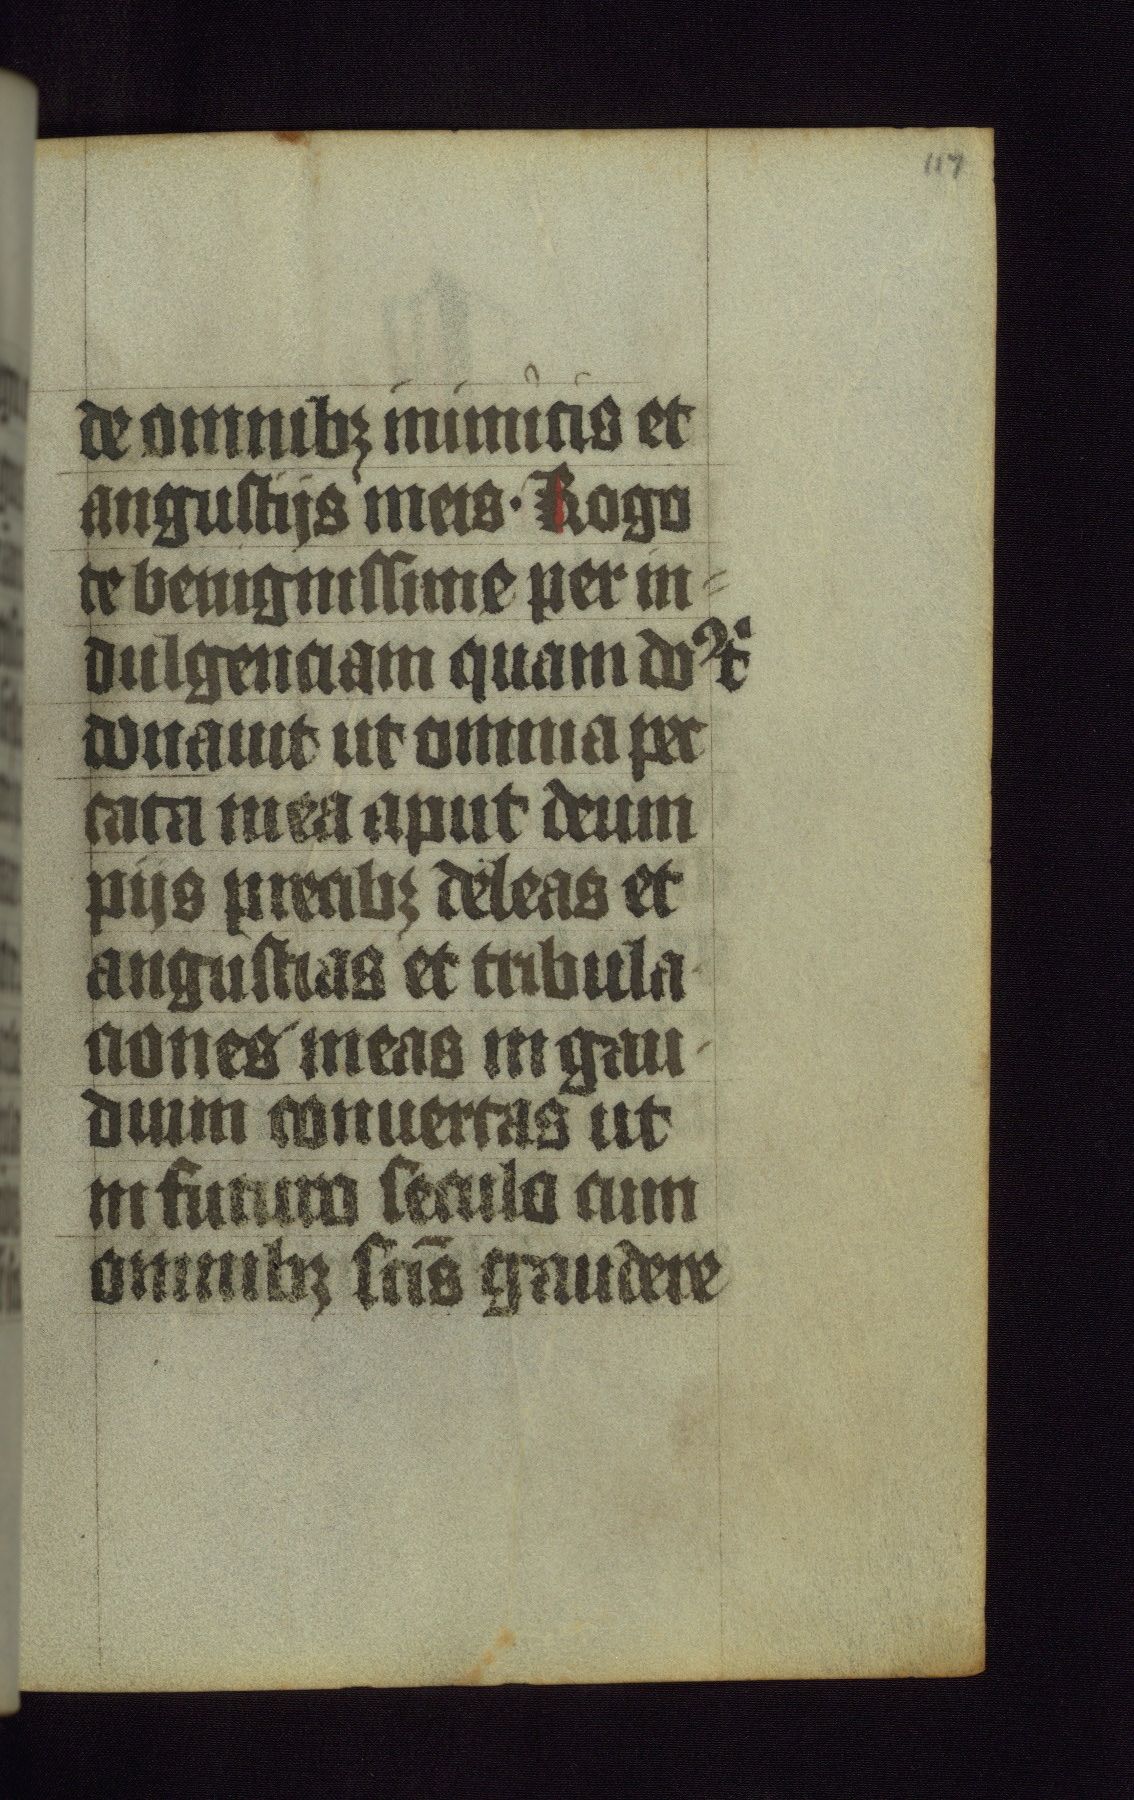 117
de omnibꝫ inimicis et
angustijs meis · Rogo
te benignissime per in⸗
dulgenciam quam do
donauit ut omnia pec
cata mea aput deum
pijs precibꝫ deleas et
angustias et tribula-
ciones meas in gau-
dium conuertas ut
in futuro seculo cum
omnibꝫ scīs gaudere